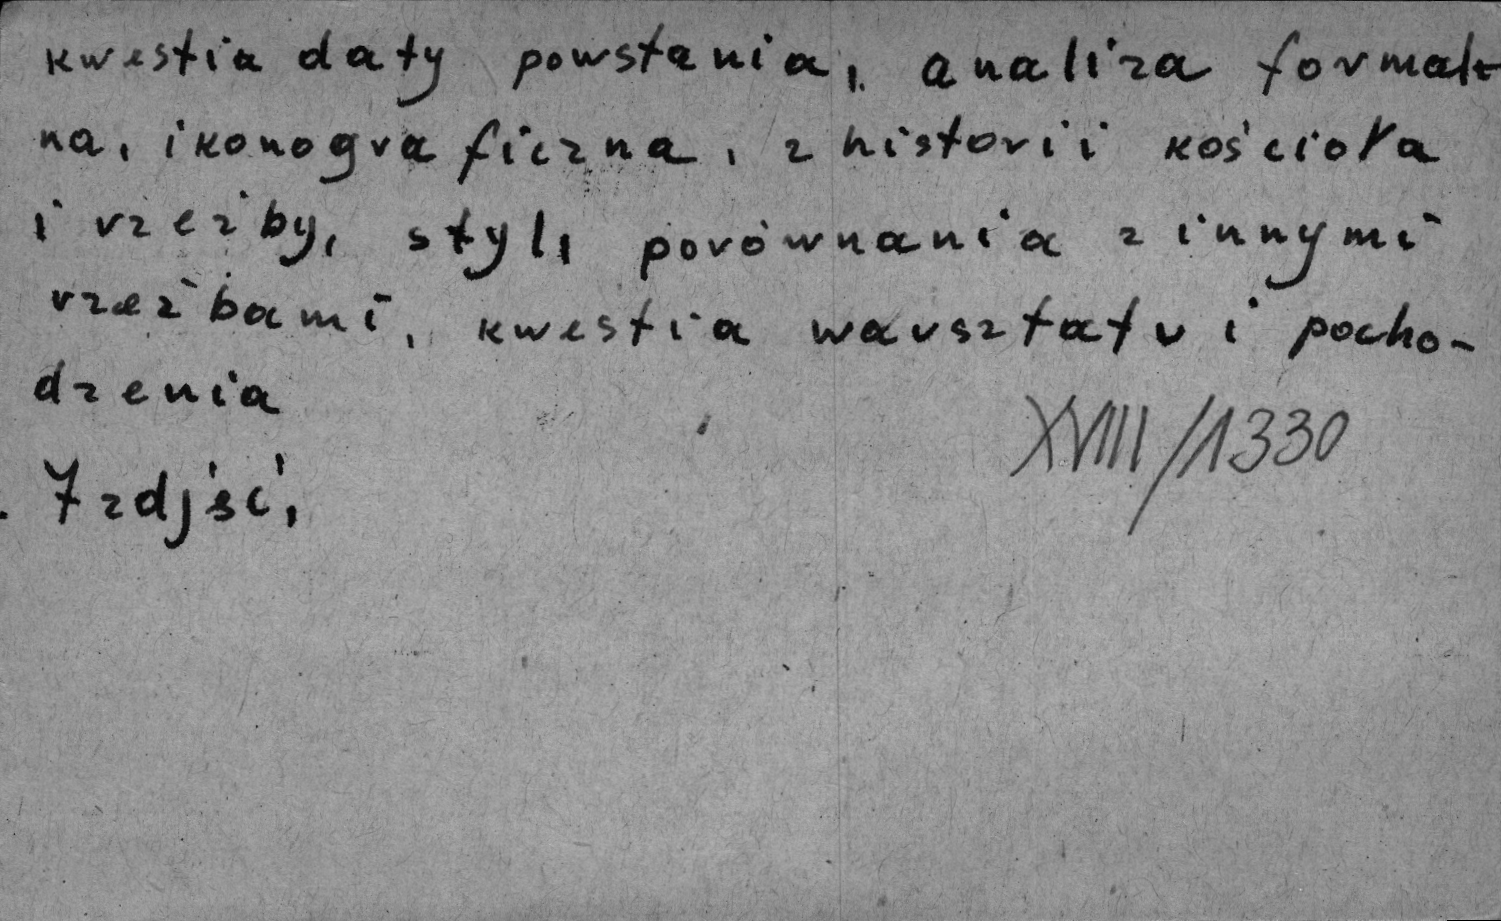 kwestia daty powstania, analiza formal-
na, ikonograficzna, z historii kościoła
i rzeźby, styl, porównania z innymi
rzeźbami, kwestia warsztatu i pocho-
dzenia
XVIII/1330
7 zdjść,